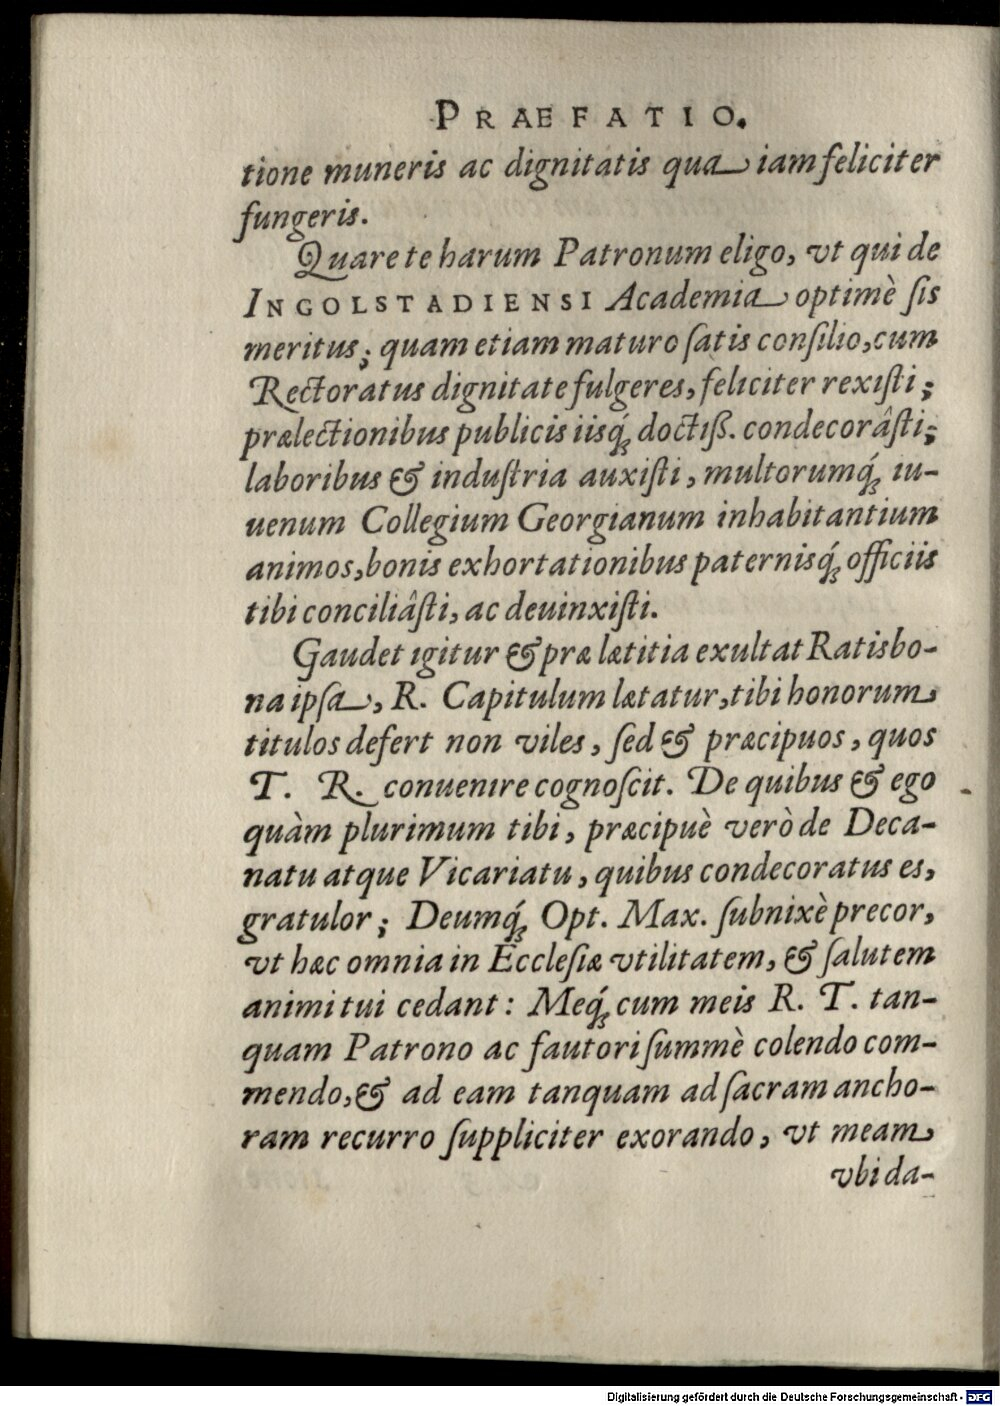 PRAEFATIO.
tione muneris ac dignitatis qua iam feliciter
fungeris.
Quare te harum Patronum eligo, vt qui de
INGOLSTADIENSI Academia optimè ſis
meritus; quam etiam maturo ſatis conſilio, cum
Rectoratus dignitate fulgeres, feliciter rexiſti;
prælectionibus publicis iisq́; doctiß. condecorâſti;
laboribus & induſtria auxiſti, multorumq́; iu-
uenum Collegium Georgianum inhabitantium
animos, bonis exhortationibus paternisq́; officiis
tibi conciliâſti, ac deuinxiſti.
Gaudet igitur & præ lætitia exultat Ratisbo-
na ipſa, R. Capitulum lætatur, tibi honorum
titulos defert non viles, ſed & præcipuos, quos
T. R. conuenire cognoſcit. De quibus & ego
quàm plurimum tibi, præcipuè verò de Deca-
natu atque Vicariatu, quibus condecoratus es,
gratulor; Deumq́; Opt. Max. ſubnixè precor,
vt hæc omnia in Eccleſiæ vtilitatem, & ſalutem
animi tui cedant: Meq́; cum meis R. T. tan-
quam Patrono ac fautori ſummè colendo com-
mendo, & ad eam tanquam ad ſacram ancho-
ram recurro ſuppliciter exorando, vt meam
vbi da-
Digitalisierung gefördert durch die Deutsche Forschungsgemeinschaft - DFG